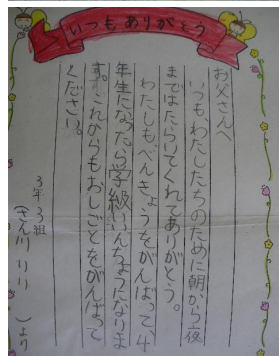 いつもありがとう
お父さんへ
いつもわたしたちのために朝から夜
まではたらいてくれてありがとう。
わたしもべんきょうをがんばって、4
年生になったら学級いいんちょうになりま
す。これからもおしごとをがんばって
ください。
3年3組
(さん川りり)より